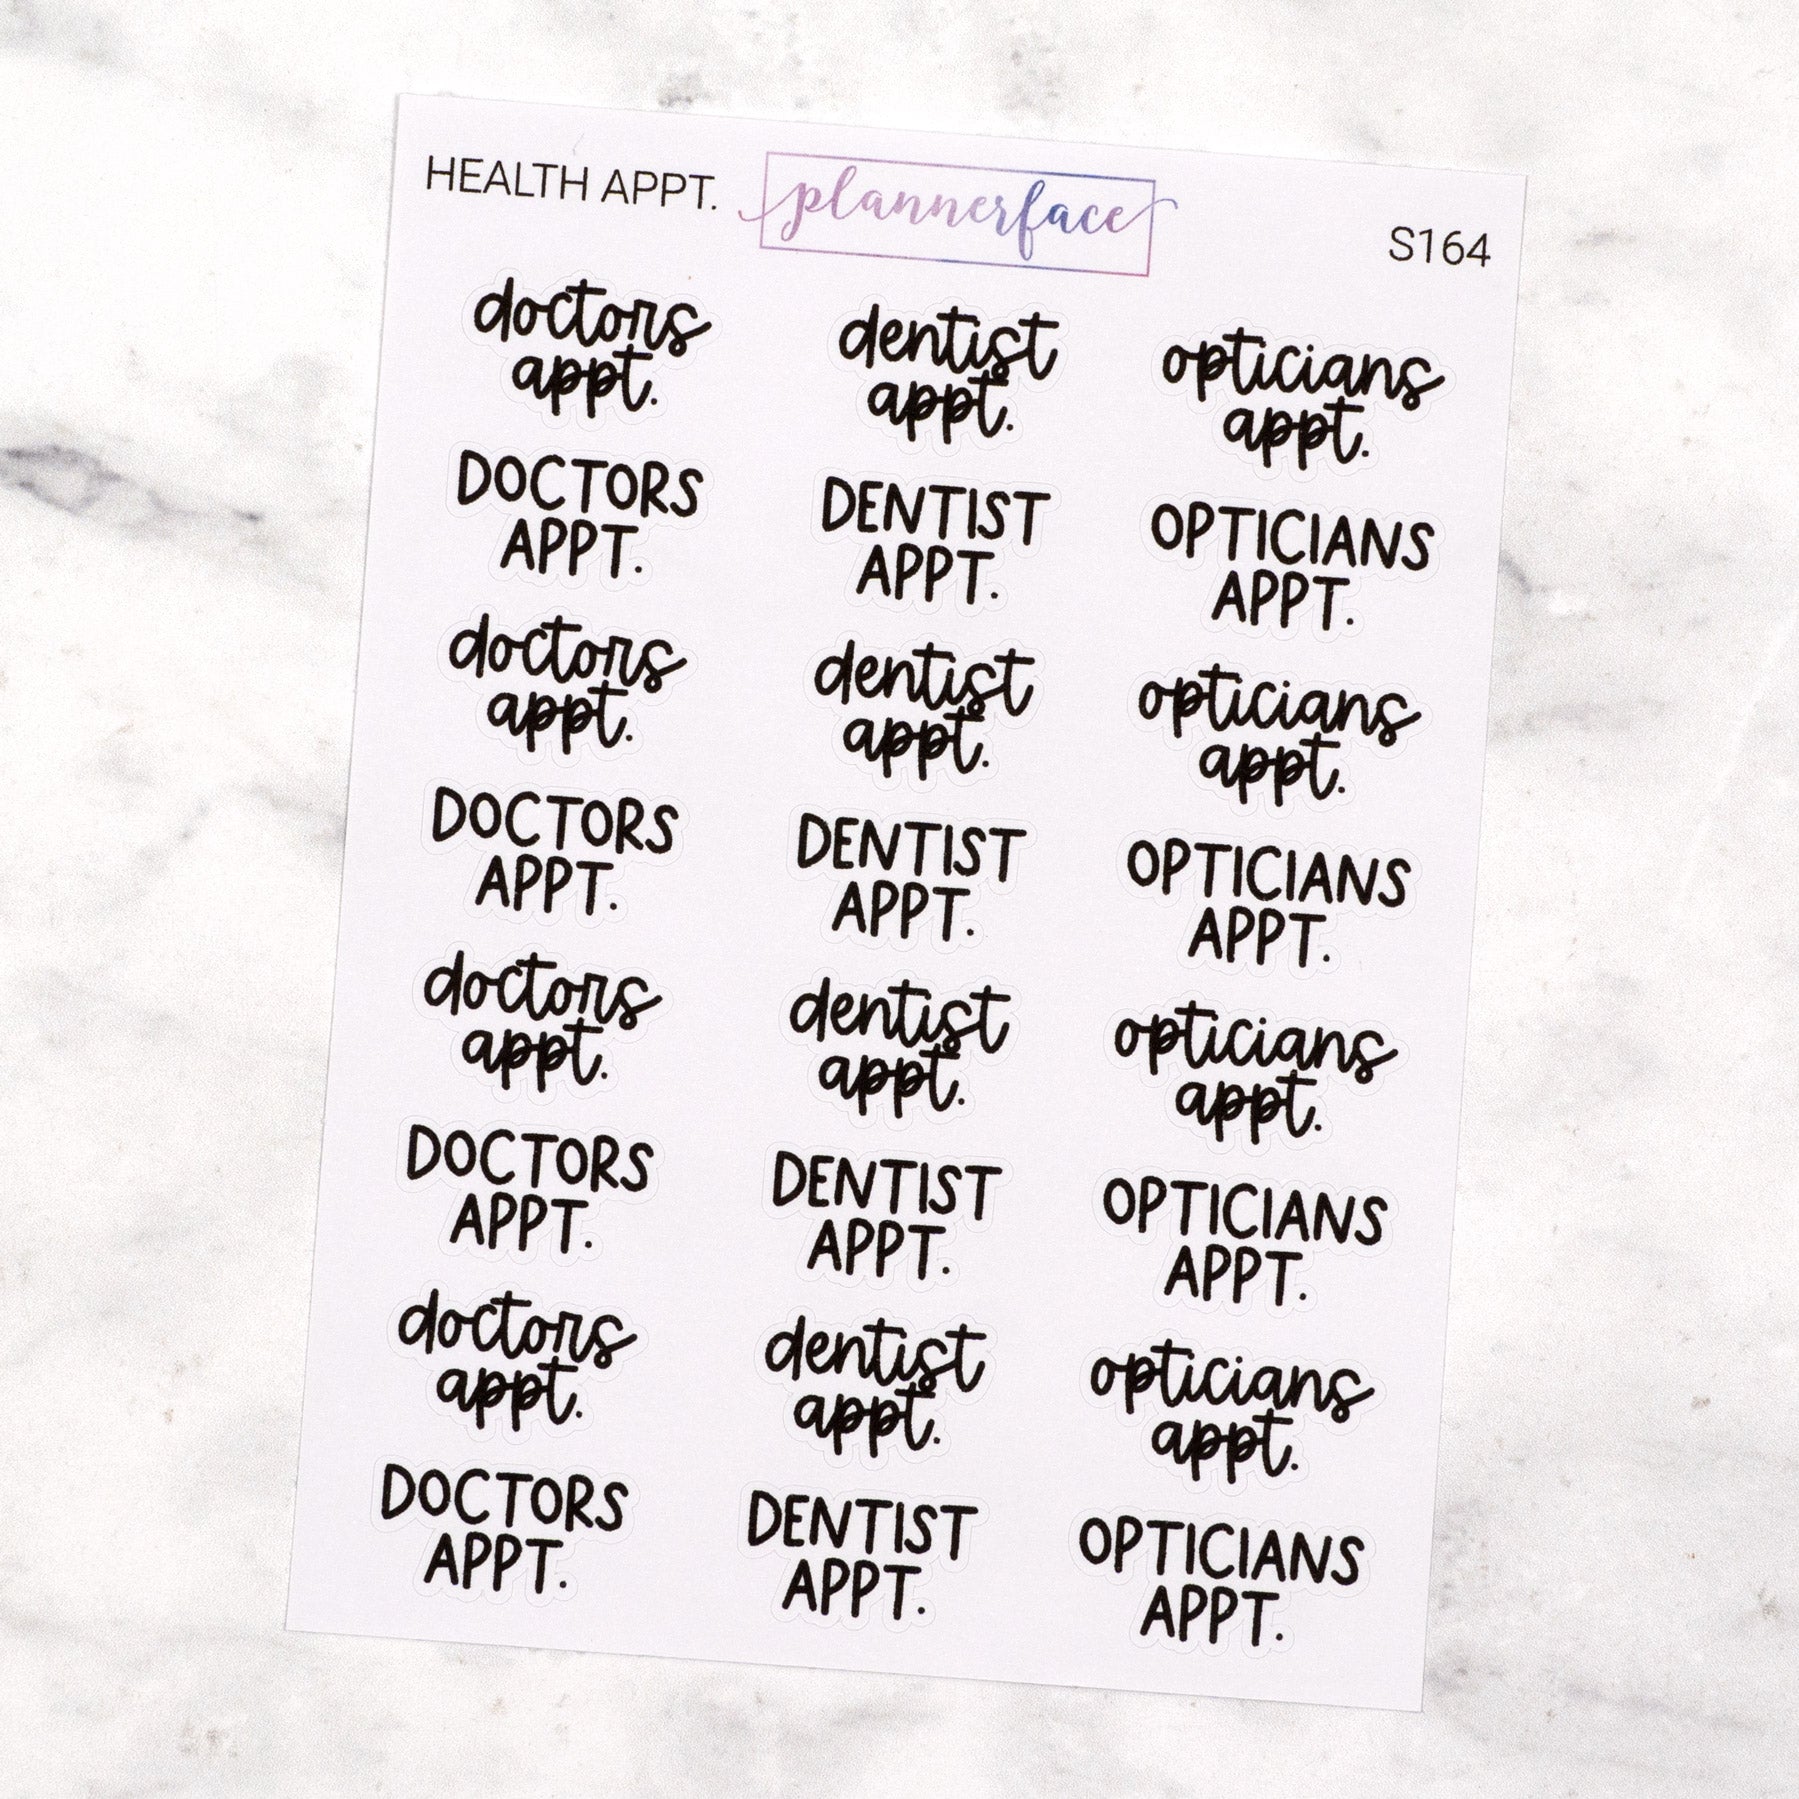 HEALTH APPT.
plannerface
S164
doctors
appt.
dentist
appt.
opticians
appt.
DOCTORS
APPT.
DENTIST
APPT.
OPTICIANS
APPT.
doctors
appt.
dentist
appt.
opticians
appt.
DOCTORS
APPT.
DENTIST
APPT.
OPTICIANS
APPT.
doctors
appt.
dentist
appt.
opticians
appt.
DOCTORS
APPT.
DENTIST
APPT.
OPTICIANS
APPT.
doctors
appt.
dentist
appt.
opticians
appt.
DOCTORS
APPT.
DENTIST
APPT.
OPTICIANS
APPT.